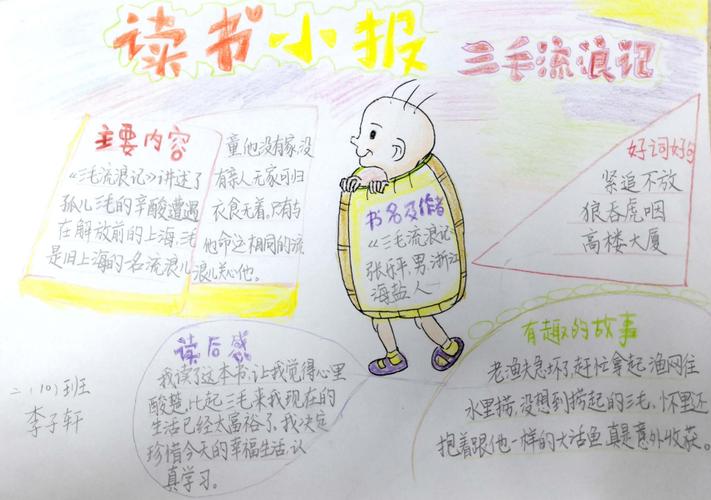 读书小报
三毛流浪记
主要内容
《三毛流浪记》讲述了
孤儿三毛的辛酸遭遇
在解放前的上海,三毛
是旧上海的一名流浪儿
童他没有家,没
有亲人无家可归
衣食无着,只有与
他命运相同的流
浪儿关心他。
书名及作者
《三毛流浪记》
张乐平,男,浙江
海盐人
好词好句
紧追不放
狼吞虎咽
高楼大厦
读后感
我读了这本书,让我觉得心里
酸楚,比起三毛来我现在的
生活已经太富裕了,我决定
珍惜今天的幸福生活,认
真学习。
有趣的故事
老渔夫急坏了,赶忙拿起渔网住
水里捞,没想到捞起的三毛,怀里还
抱着跟他一样的大活鱼,真是意外收获。
二、(10)班
李子轩